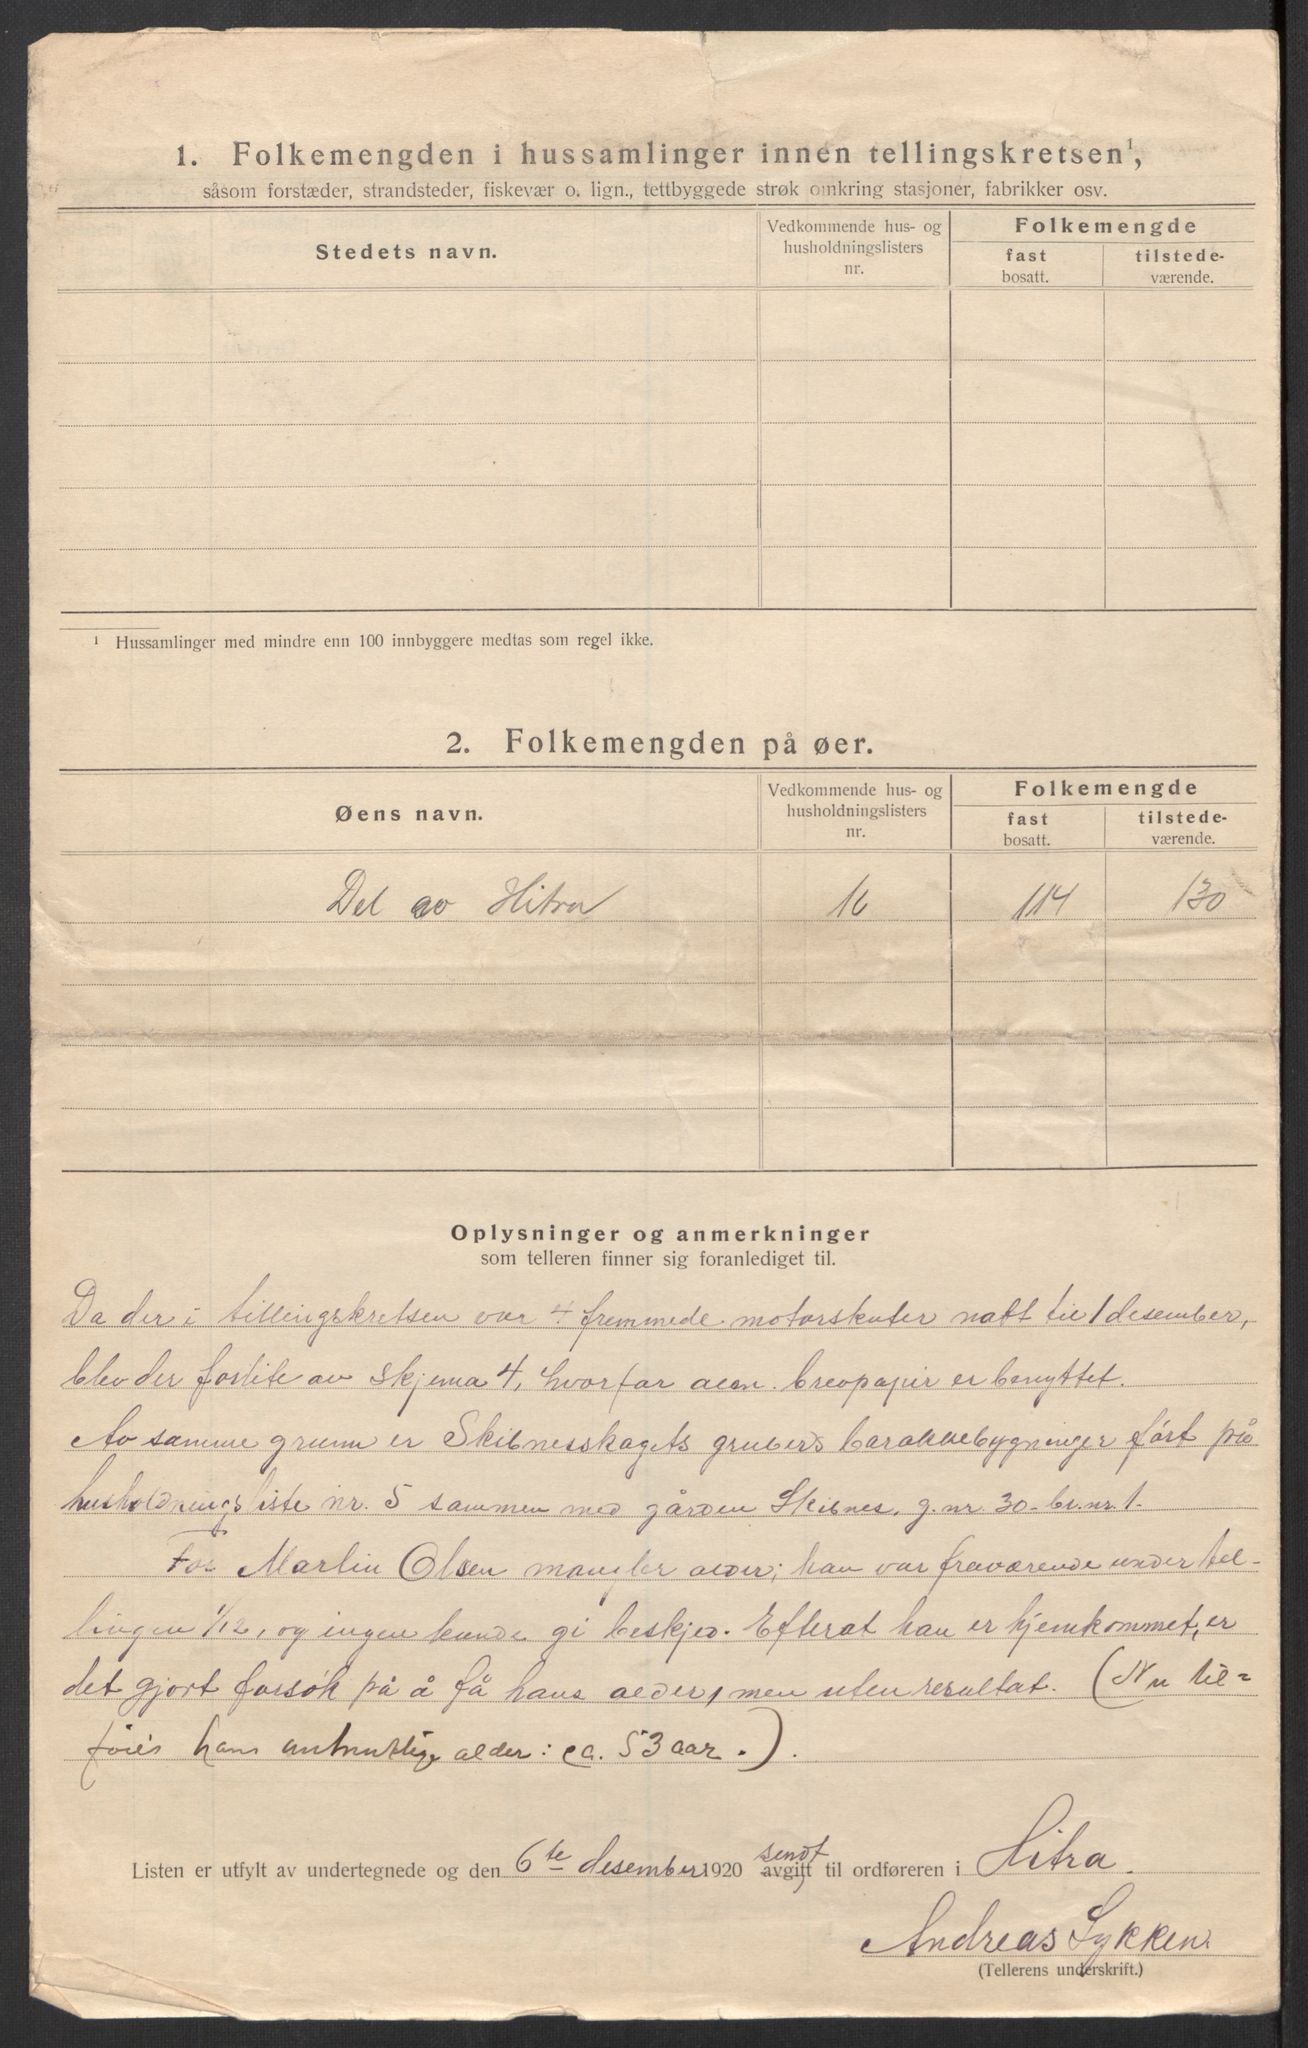 1. Folkemengden i hussamlinger innen tellingskretsen¹,
såsom forstæder, strandsteder, fiskevær o. lign., tettbyggede strøk omkring stasjoner, fabrikker osv.
Stedets navn.
Vedkommende hus- og
husholdningslisters
nr.
Folkemengde
fast
bosatt.
tilstede-
værende.
¹ Hussamlinger med mindre enn 100 innbyggere medtas som regel ikke.
2. Folkemengden på øer.
Øens navn.
Vedkommende hus- og
husholdningslisters
nr.
Folkemengde
fast
bosatt.
tilstede-
værende.
Del av Hitra 16 114 130
Oplysninger og anmerkninger
som telleren finner sig foranlediget til.
Da der i tellingskretsen var 4 fremmede motorskuter natt til 1 desember,
blev der forlite av skjema 4, hvorfor alm. brevpapir er benyttet.
Av samme grunn er Skibnesskagets grubers barakkebygninger ført på
husholdningsliste nr. 5 sammen med gården Skibnes, g.nr. 30 - br.nr. 1.
For Martin Olsen mangler alder; han var fraværende under tel-
lingen 1/12, og ingen kunde gi beskjed. Efterat han er hjemkommet, er
det gjort forsøk på å få hans alder, men uten resultat. (Nu til=
føies hans antatlige alder: ca. 53 aar.).
Listen er utfylt av undertegnede og den 6te desember 1920 avgitt sendt til ordføreren i Hitra.
Andreas Lykken.
(Tellerens underskrift.)